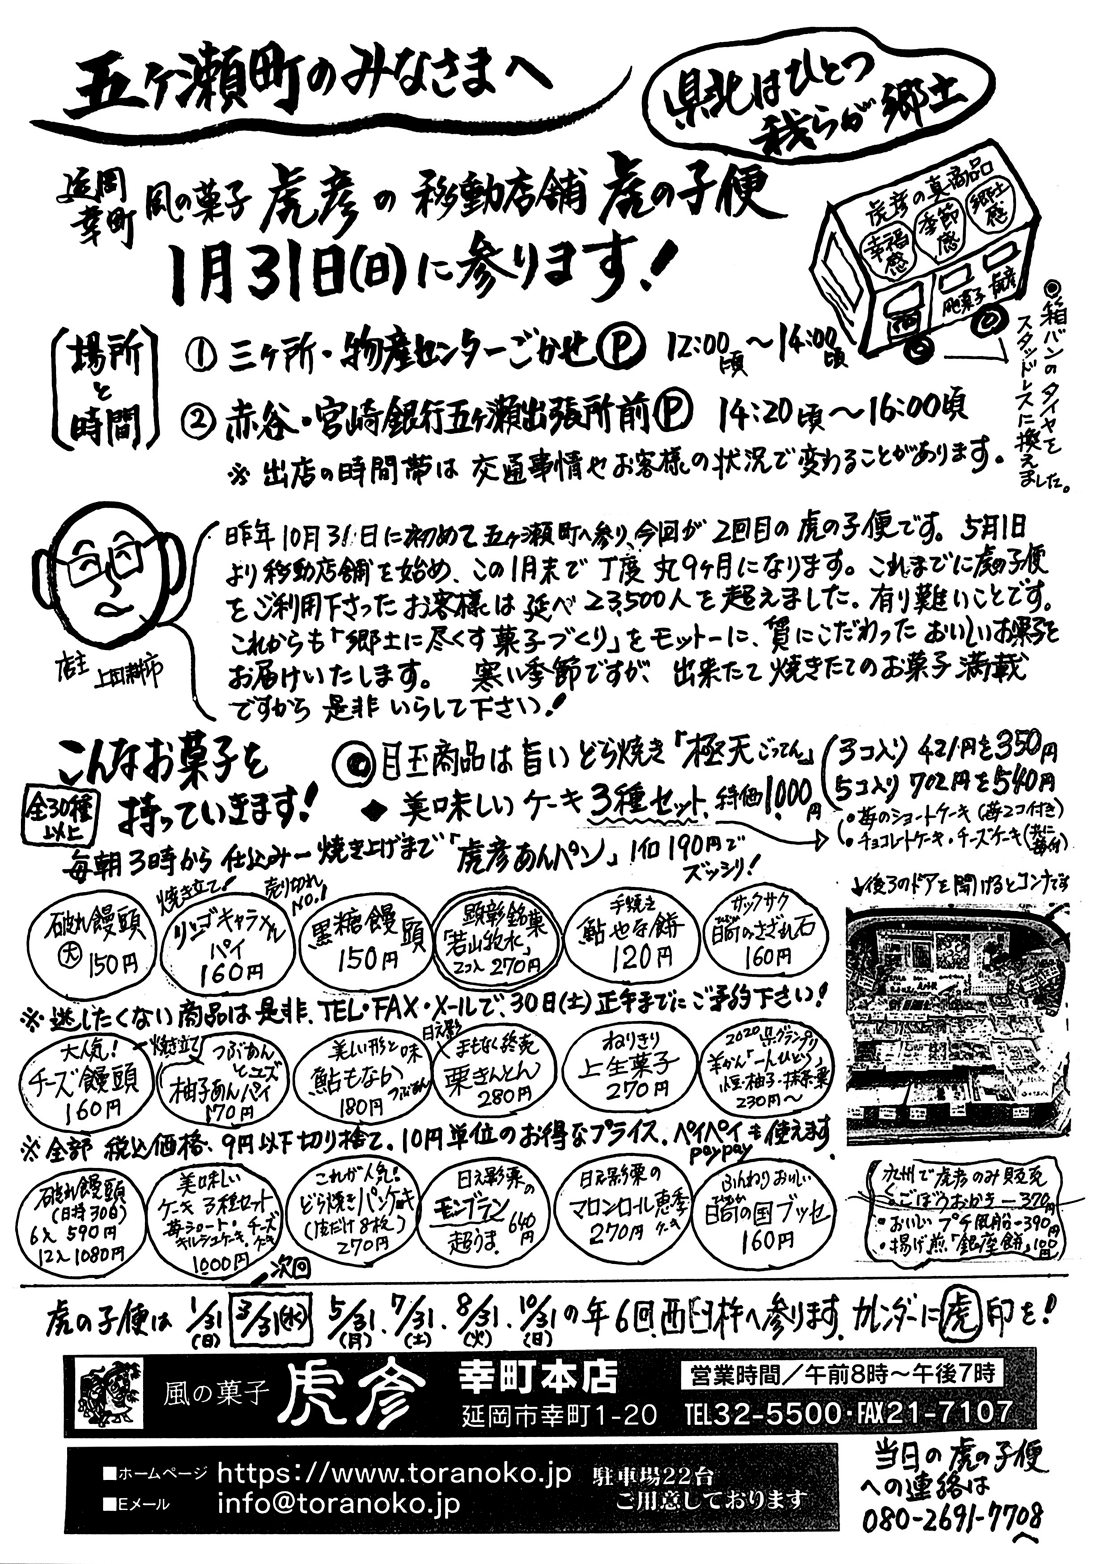 五ヶ瀬町のみなさまへ
県北はひとつ
我らが郷土
延岡
幸町
風の菓子 虎彦の移動店舗 虎の子便
1月31日(日)に参ります!
虎彦の真商品
幸福感
季節感
郷土感
風の菓子 虎彦
◎箱バンのタイヤを
スタッドレスに換えました。
場所
と
時間
① 三ヶ所・物産センターごかせⓅ 12:00頃〜14:00頃
② 赤谷・宮崎銀行五ヶ瀬出張所前Ⓟ 14:20頃〜16:00頃
※ 出店の時間帯は 交通事情やお客様の状況で変わることがあります。
昨年10月31日に初めて五ヶ瀬町へ参り、今回が2回目の虎の子便です。5月1日
より移動店舗を始め、この1月末で丁度丸9ヶ月になります。これまでに虎の子便
をご利用下さったお客様は延べ23,500人を超えました。有り難いことです。
これからも「郷土に尽くす菓子づくり」をモットーに、質にこだわったおいしいお菓子を
お届けいたします。 寒い季節ですが、出来たて焼きたてのお菓子満載
ですから是非いらして下さい!
店主 上田耕市
こんなお菓子を
持っていきます!
全30種
以上
目玉商品は旨いどら焼き「極天ごってん」
3コ入り 421円を350円
5コ入り 702円を540円
◆ 美味しいケーキ3種セット、特価1,000円
・苺のショートケーキ(苺2コ付き)
・チョコレートケーキ・チーズケーキ(共に苺付)
毎朝3時から仕込み—焼き上げまで「虎彦あんパン」1個190円で
ズッシリ!
↓後ろのドアを開けるとコンナです
破れ饅頭
大 150円
焼き立て!
リンゴキャラメル
パイ
160円
売り切れNo.1
黒糖饅頭
150円
顕彰銘菓
「若山牧水」
2コ入 270円
手焼き
鮎やな餅
120円
サックサク
日向のさざれ石
160円
※ 逃したくない商品は是非、TEL・FAX・メールで、30日(土)正午までにご予約下さい!
大人気!
チーズ饅頭
160円
焼き立て
つぶあん
とユズ
柚子あんパイ
170円
美しい形と味
鮎もなか
180円 つぶあん
日之影
まもなく終売
栗きんとん
280円
ねりきり
上生菓子
270円
2020県グランプリ
羊かん「一人ひとつ」
小豆・柚子・抹茶・栗
230円〜
※ 全部 税込価格、9円以下切り捨て、10円単位のお得なプライス。ペイペイも使えます
paypay
破れ饅頭
(日持30日)
6入 590円
12入 1080円
美味しい
ケーキ 3種セット
苺ショート・チーズ
キルシュケーキ・ケーキ
1000円
これが人気!
どら焼きパンケーキ
(皮だけ8枚)
270円
日之影栗の
モンブラン
超うま 640円
日之影栗の
マロンロール恵季
270円 ケーキ
ふんわりおいしい
日向の国ブッセ
160円
九州で虎彦のみ販売
・ごぼうおかき—370円
・おいしいプチ風船—390円
・揚げ煎「銀座餅」100円
次回
虎の子便は 1/31(日) 3/31(水) 5/31(月)、7/31(土)、8/31(火)、10/31(日)の年6回、西臼杵へ参ります。カレンダーに虎印を!
風の菓子 虎彦
幸町本店
延岡市幸町1-20
営業時間/午前8時〜午後7時
TEL32-5500・FAX21-7107
■ホームページ https://www.toranoko.jp
■Eメール info@toranoko.jp
駐車場22台
ご用意しております
当日の虎の子便
への連絡は
080-2691-7708
へ